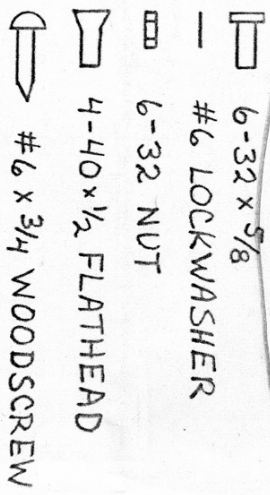 6-32 x 5/8
#6 LOCKWASHER
6-32 NUT
4-40 x 1/2 FLATHEAD
#6 x 3/4 WOODSCREW